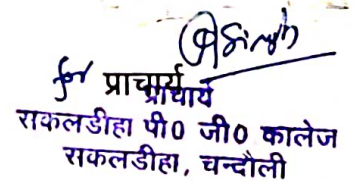 for प्राचार्य
प्राचार्य
सकलडीहा पी0 जी0 कालेज
सकलडीहा, चन्दौली